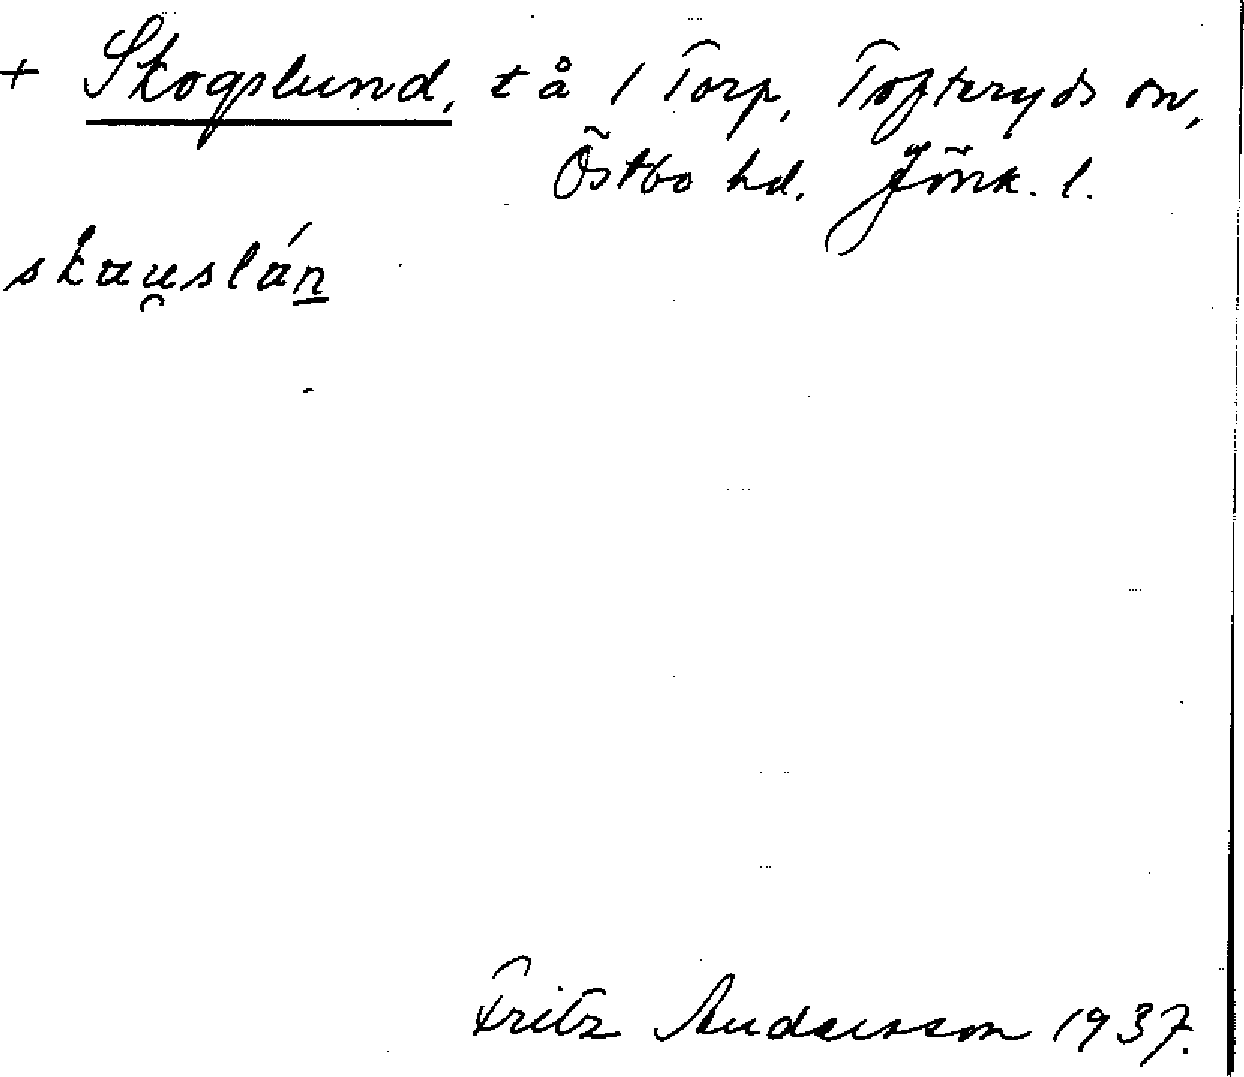 + Skogslund, t å 1 Torp, Tofteryds sn,
Östbo hd. Jönk. l.
skau̯slán̲
Fritz Andersson 1937.